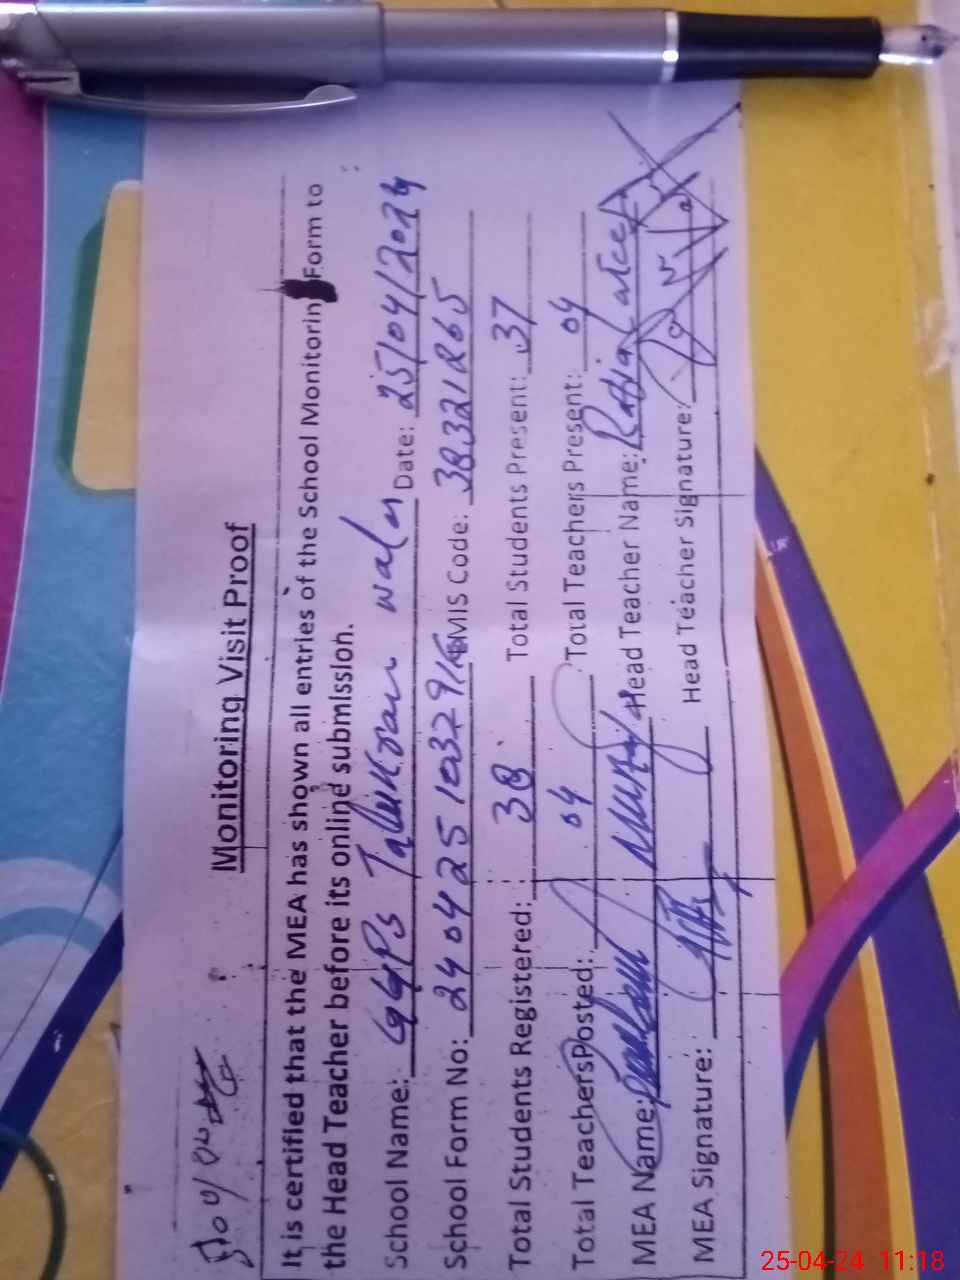 Monitoring Visit Proof
It is certified that the MEA has shown all entries of the School Monitorin Form to
the Head Teacher before its online submission.
School Name: GGPS Talukran wala Date: 25/04/2024
School Form No: 2404251037916 EMIS Code: 38321265
Total Students Registered: 38 Total Students Present: 37
Total TeachersPosted: 04 Total Teachers Present: 04
MEA Name: Head Teacher Name: Rafia
MEA Signature: Head Teacher Signature:
25-04-24 11:18